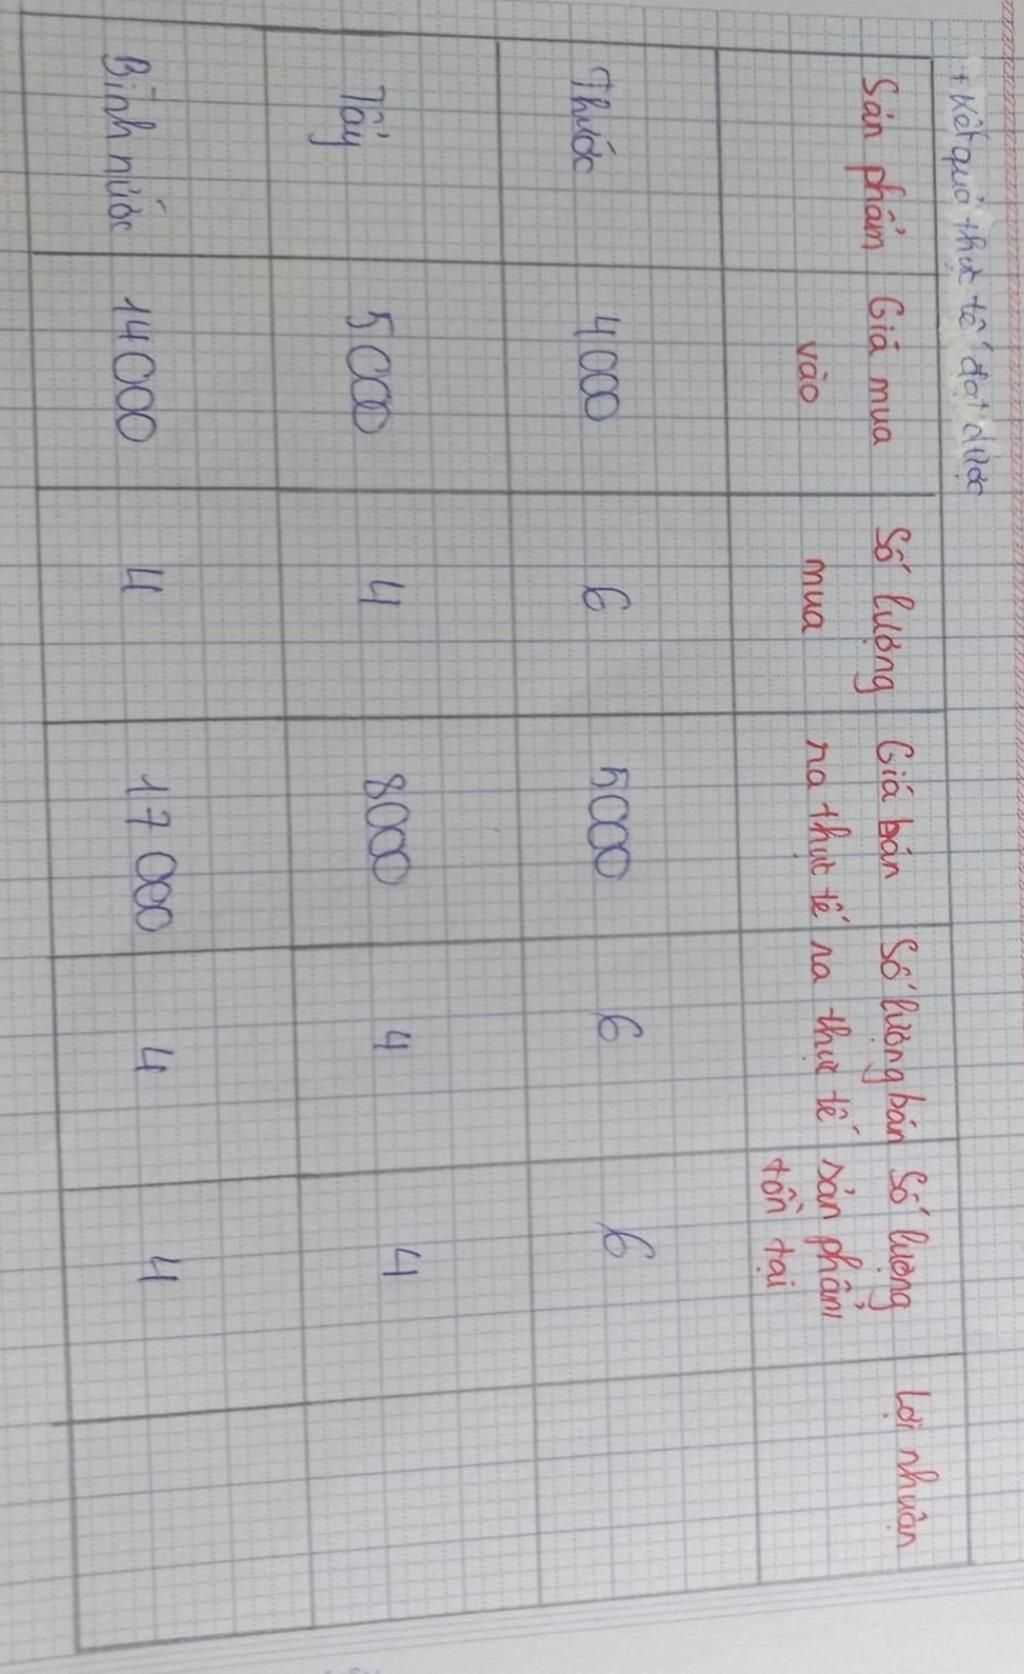 + Kết quả thực tế đạt được
Sản phẩm
Giá mua
vào
Số lượng
mua
Giá bán
ra thực tế
Số lượng bán
ra thực tế
Số lượng
sản phẩm
tồn tại
Lợi nhuận
Thước 4000 6 5000 6 6
Tẩy 5000 4 8000 4 4
Bình nước 14000 4 17000 4 4